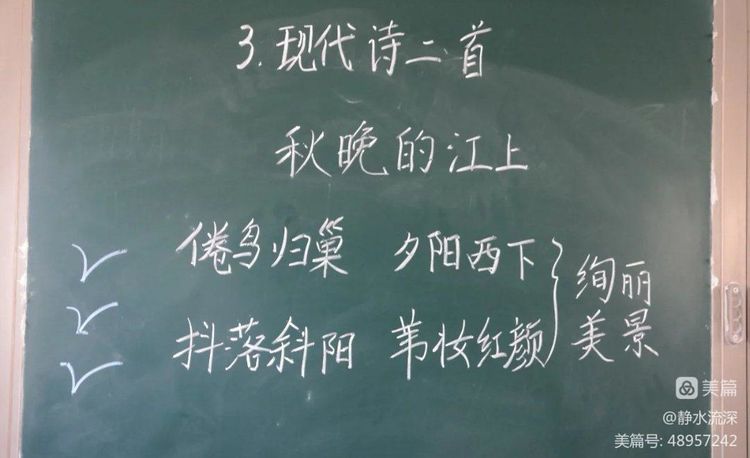 3.现代诗二首
秋晚的江上
倦鸟归巢 夕阳西下
抖落斜阳 苇妆红颜
绚丽
美景
美篇
@静水流深
美篇号: 48957242